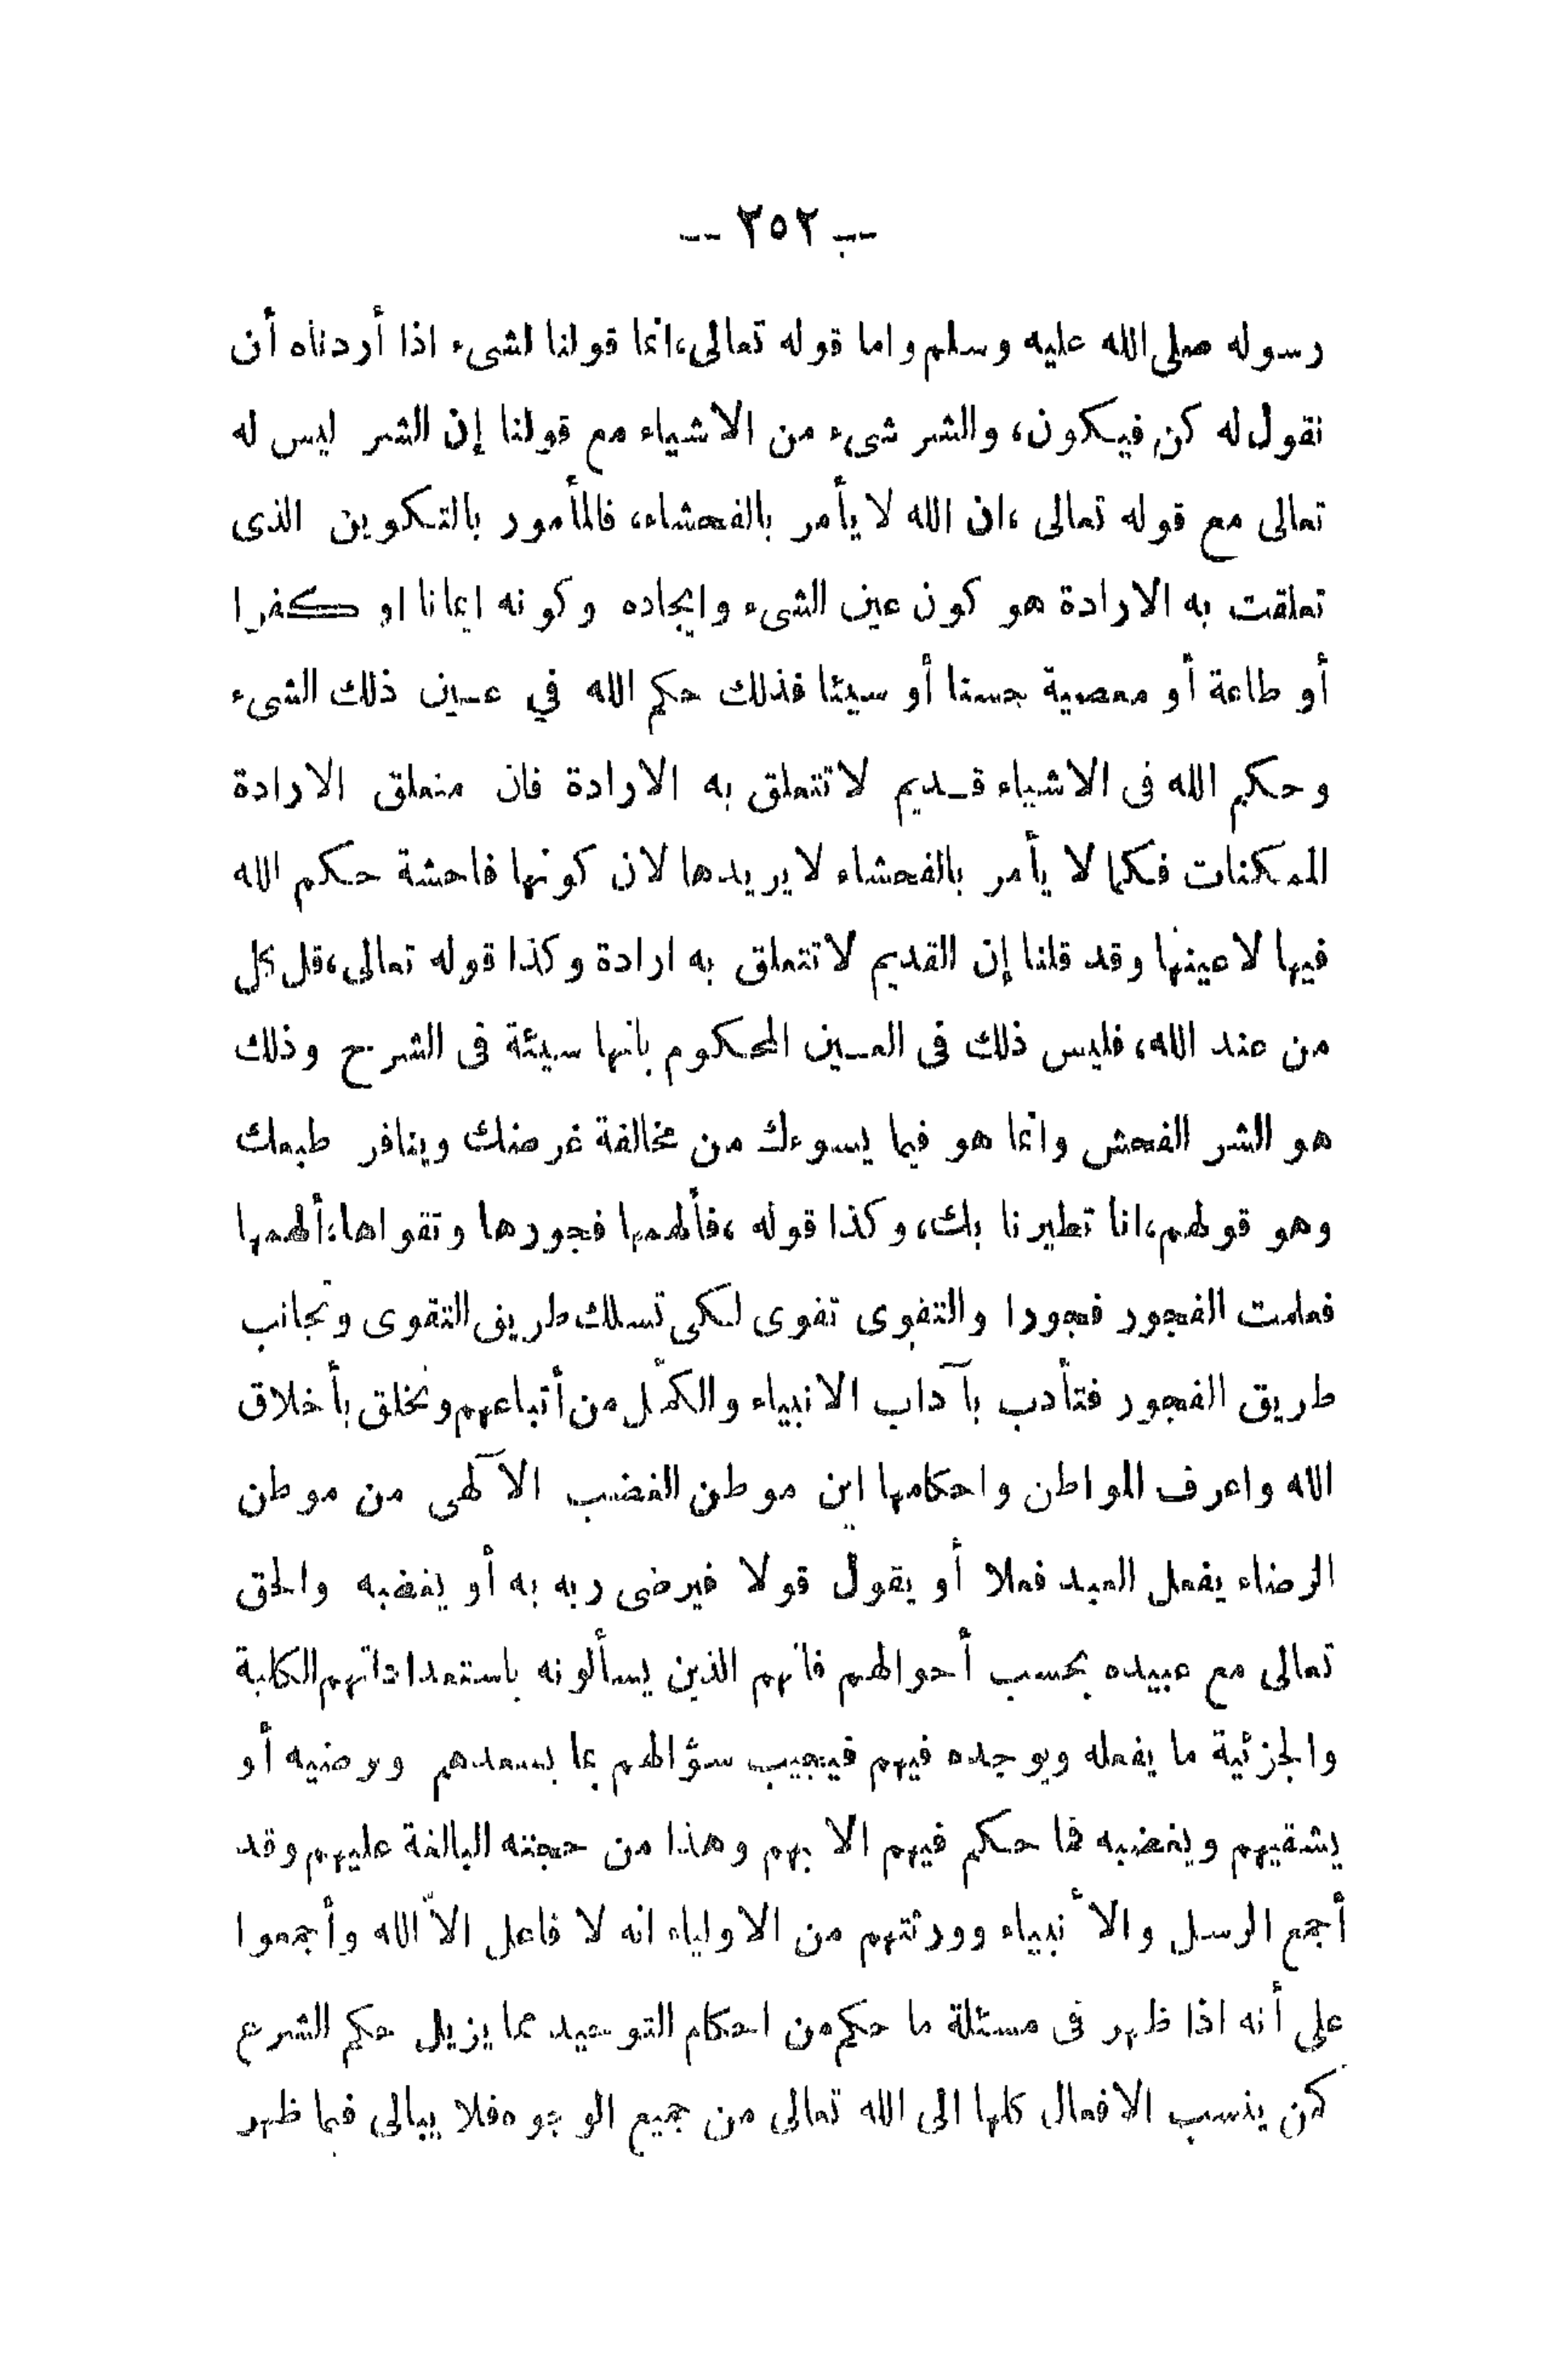 -- ٢٥٢ --
رسوله صلى الله عليه وسلم واما قوله تعالى،انما قولنا لشىء اذا أردناه أن
نقول له كن فيكون، والشر شىء من الاشياء مع قولنا إن الشر ليس له
تعالى مع قوله تعالى ،ان الله لا يأمر بالفحشاء، فالمأمور بالتكوين الذى
تعلقت به الارادة هو كون عين الشىء وايجاده وكونه ايمانا او كفرا
أو طاعة أو معصية حسنا أو سيئا فذلك حكم الله في عين ذلك الشىء
وحكم الله فى الاشياء قديم لا تتعلق به الارادة فان متعلق الارادة
الممكنات فكما لا يأمر بالفحشاء لا يريدها لان كونها فاحشة حكم الله
فيها لا عينها وقد قلنا إن القديم لا تتعلق به ارادة وكذا قوله تعالى،قل كل
من عند الله، فليس ذلك فى العين المحكوم بانها سيئة فى الشرح وذلك
هو الشر الفحش وانما هو فيما يسوءك من مخالفة غرضك وينافر طبعك
وهو قولهم،انا تطيرنا بك، وكذا قوله ،فألهمها فجورها وتقواها،ألهمها
فعلمت الفجور فجورا والتقوى تقوى لكى تسلك طريق التقوى وتجانب
طريق الفجور فتأدب بآداب الانبياء والكمّل من أتباعهم وتخلق بأخلاق
الله واعرف المواطن واحكامها اين موطن الغضب الآلهى من موطن
الرضاء يفعل العبد فعلا أو يقول قولا فيرضى ربه به أو يغضبه والحق
تعالى مع عبيده بحسب أحوالهم فانهم الذين يسألونه باستعداداتهم الكلية
والجزئية ما يفعله ويوجده فيهم فيجيب سؤالهم بما يسعدهم ويرضيه أو
يشقيهم ويغضبه فما حكم فيهم الا بهم وهذا من حجته البالغة عليهم وقد
أجمع الرسل والأنبياء وورثتهم من الاولياء انه لا فاعل الاّ الله وأجمعوا
على أنه اذا ظهر فى مسئلة ما حكم من احكام التوحيد مما يزيل حكم الشرع
كمن ينسب الافعال كلها الى الله تعالى من جميع الوجوه فلا يبالى فيما ظهر